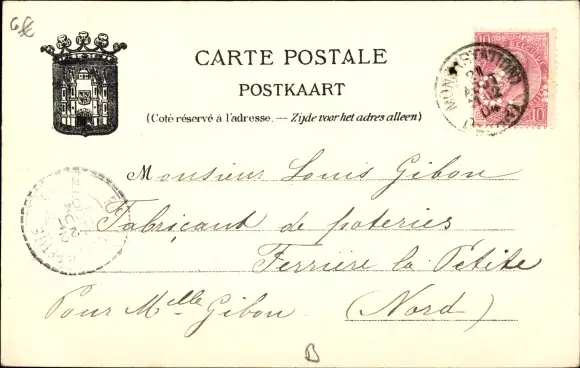 G
CARTE POSTALE
POSTKAART
(Coté réservé à l'adresse. — Zijde voor het adres alleen)
10 10
MONS (STATION)
Monsieur Louis Gibon
Fabricant de poteries
Ferrière la Petite
Pour Mlle Gibon. (Nord)
B